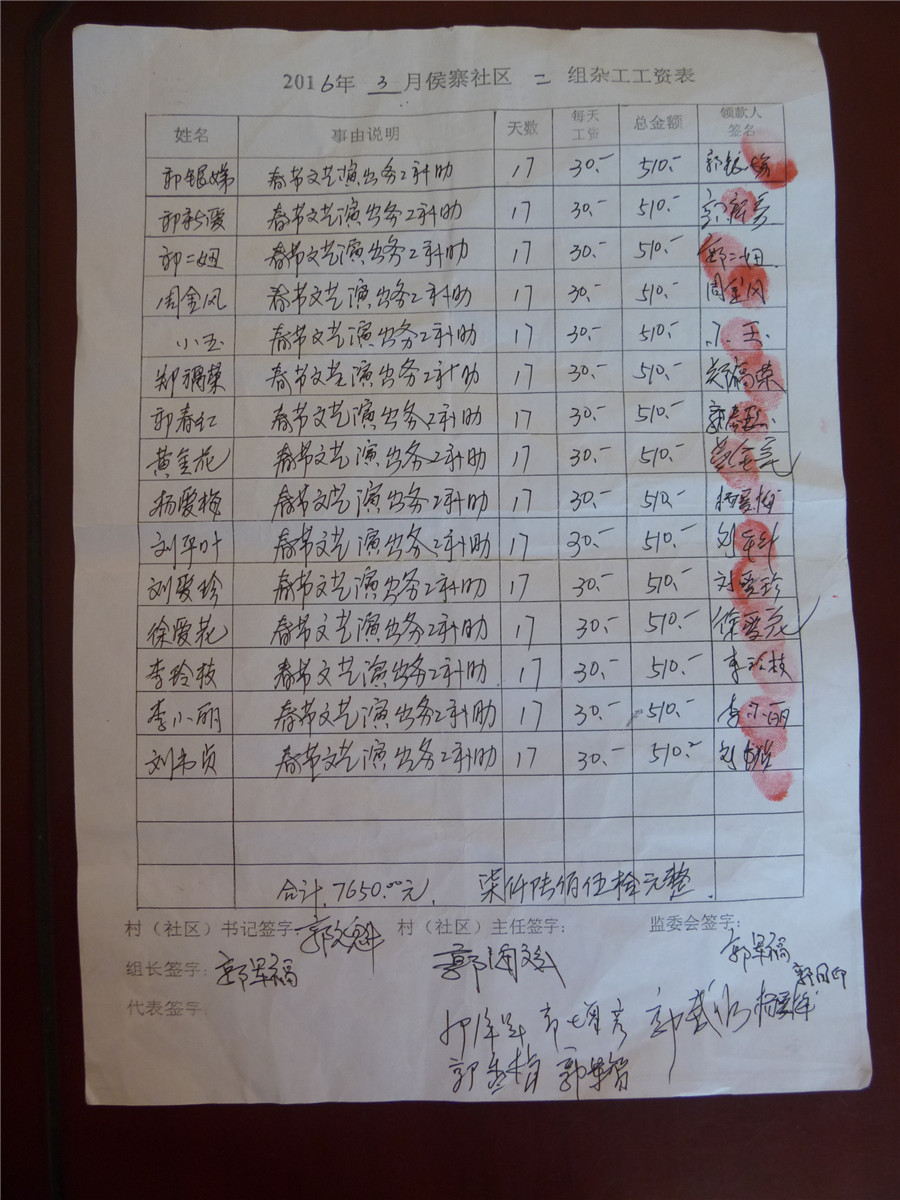 2016年 3 月侯寨社区 二 组杂工工资表
姓名 事由说明 天数 每天工资 总金额 领款人签名
郭银娣 春节文艺演出务工补助 17 30.- 510.- 郭银娣
郭新爱 春节文艺演出务工补助 17 30.- 510.- 郭新爱
郭二妞 春节文艺演出务工补助 17 30.- 510.- 郭二妞
周金风 春节文艺演出务工补助 17 30.- 510.- 周金风
小玉 春节文艺演出务工补助 17 30.- 510.- 小玉
郑福荣 春节文艺演出务工补助 17 30.- 510.- 郑福荣
郭春红 春节文艺演出务工补助 17 30.- 510.- 郭春红
黄金花 春节文艺演出务工补助 17 30.- 510.- 黄金花
杨爱梅 春节文艺演出务工补助 17 30.- 510.- 杨爱梅
刘平叶 春节文艺演出务工补助 17 30.- 510.- 刘平叶
刘爱珍 春节文艺演出务工补助 17 30.- 510.- 刘爱珍
徐爱花 春节文艺演出务工补助 17 30.- 510.- 徐爱花
李玲枝 春节文艺演出务工补助 17 30.- 510.- 李玲枝
李小丽 春节文艺演出务工补助 17 30.- 510.- 李小丽
刘书贞 春节文艺演出务工补助 17 30.- 510.-
合计.7650.00元. 柒仟陆佰伍拾元整.
村（社区）书记签字: 郭文魁 村（社区）主任签字: 监委会签字:
组长签字: 郭军福 郭军福
代表签字:
郭军智